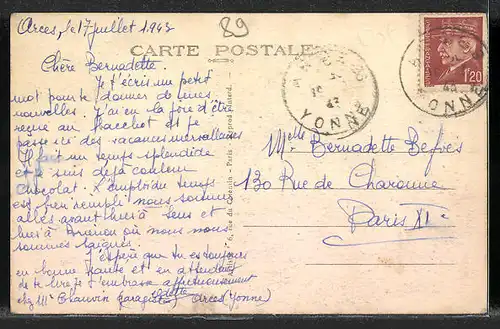 Arces, le 17 juillet 1943
89
CARTE POSTALE
Chère Bernadette.
Je t'écris un petit
mot pour te donner de mes
nouvelles. J'ai eu la joie d'être
reçue au bachot et je
passe ici des vacances merveilleuses
Il fait un temps splendide
et je suis déjà couleur
chocolat. L'emploi du temps
est bien rempli nous sommes
allés avant hier à Sens et
hier à Brienon où nous nous
sommes baignés.
J'espère que tu es toujours
en bonne santé et en attendant
de te lire je t'embrasse affectueusement
Odette
chez Mr Chauvin garagiste Arces (Yonne)
6, rue du - Paris
YONNE
YONNE
1f20
Melle Bernadette Befves
130 Rue de Charonne
Paris XIe